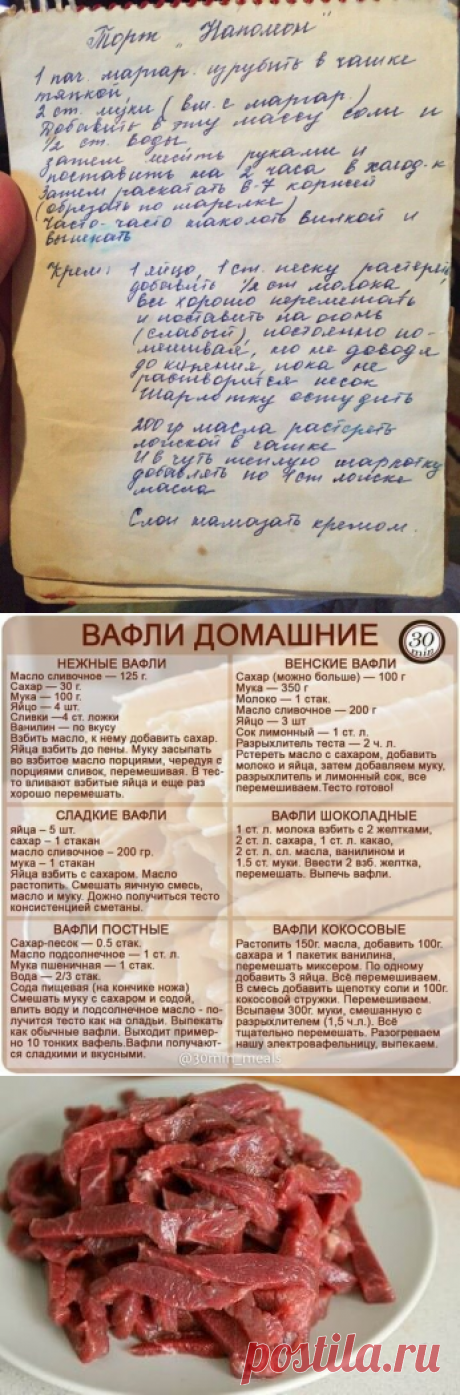 Торт „Наполеон"
1 пач. маргар. изрубить в чашке
тяпкой,
2 ст. муки (вм. с маргар.)
Добавить в эту массу соли и
1/2 ст. воды,
затем месить руками и
поставить на 2 часа в холод-к
Затем раскатать 6-7 коржей
(обрезать по тарелке)
Часто-часто наколоть вилкой и
выпекать
Крем: 1 яйцо, 1 ст. песку растереть
добавить 1/2 ст молока,
все хорошо перемешать
и поставить на огонь
(слабый), постоянно по-
мешивая, но не доводя
до кипения, пока не
растворится песок
Шарлотку остудить
200 гр масла растереть
ложкой в чашке
И в чуть теплую шарлотку
добавлять по 1 ст ложке
масла
Слои намазать кремом.
ВАФЛИ ДОМАШНИЕ
30
min
НЕЖНЫЕ ВАФЛИ
Масло сливочное — 125 г.
Сахар — 30 г.
Мука — 100 г.
Яйцо — 4 шт.
Сливки —4 ст. ложки
Ванилин — по вкусу
Взбить масло, к нему добавить сахар.
Яйца взбить до пены. Муку засыпать
во взбитое масло порциями, чередуя с
порциями сливок, перемешивая. В тес-
то вливают взбитые яйца и еще раз
хорошо перемешать.
ВЕНСКИЕ ВАФЛИ
Сахар (можно больше) — 100 г
Мука — 350 г
Молоко — 1 стак.
Масло сливочное — 200 г
Яйцо — 3 шт
Сок лимонный — 1 ст. л.
Разрыхлитель теста — 2 ч. л.
Рстереть масло с сахаром, добавить
молоко и яйца, затем добавляем муку,
разрыхлитель и лимонный сок, все
перемешиваем.Тесто готово!
СЛАДКИЕ ВАФЛИ
яйца – 5 шт.
сахар – 1 стакан
масло сливочное – 200 гр.
мука – 1 стакан
Яйца взбить с сахаром. Масло
растопить. Смешать яичную смесь,
масло и муку. Дожно получиться тесто
консистенцией сметаны.
ВАФЛИ ШОКОЛАДНЫЕ
1 ст. л. молока взбить с 2 желтками,
2 ст. л. сахара, 1 ст. л. какао,
2 ст. л. сл. масла, ванилином и
1.5 ст. муки. Ввести 2 взб. желтка,
перемешать. Выпечь вафли.
ВАФЛИ ПОСТНЫЕ
Сахар-песок — 0.5 стак.
Масло подсолнечное — 1 ст. л.
Мука пшеничная — 1 стак.
Вода — 2/3 стак.
Сода пищевая (на кончике ножа)
Смешать муку с сахаром и содой,
влить воду и подсолнечное масло - по-
лучится тесто как на оладьи. Выпекать
как обычные вафли. Выходит пример-
но 10 тонких вафель.Вафли получают-
ся сладкими и вкусными.
ВАФЛИ КОКОСОВЫЕ
Растопить 150г. масла, добавить 100г.
сахара и 1 пакетик ванилина,
перемешать миксером. По одному
добавить 3 яйца. Всё перемешиваем.
В смесь добавить щепотку соли и 100г.
кокосовой стружки. Перемешиваем.
Всыпаем 300г. муки, смешанную с
разрыхлителем (1,5 ч.л.). Всё
тщательно перемешать. Разогреваем
нашу электровафельницу, выпекаем.
@30min_meals
postila.ru